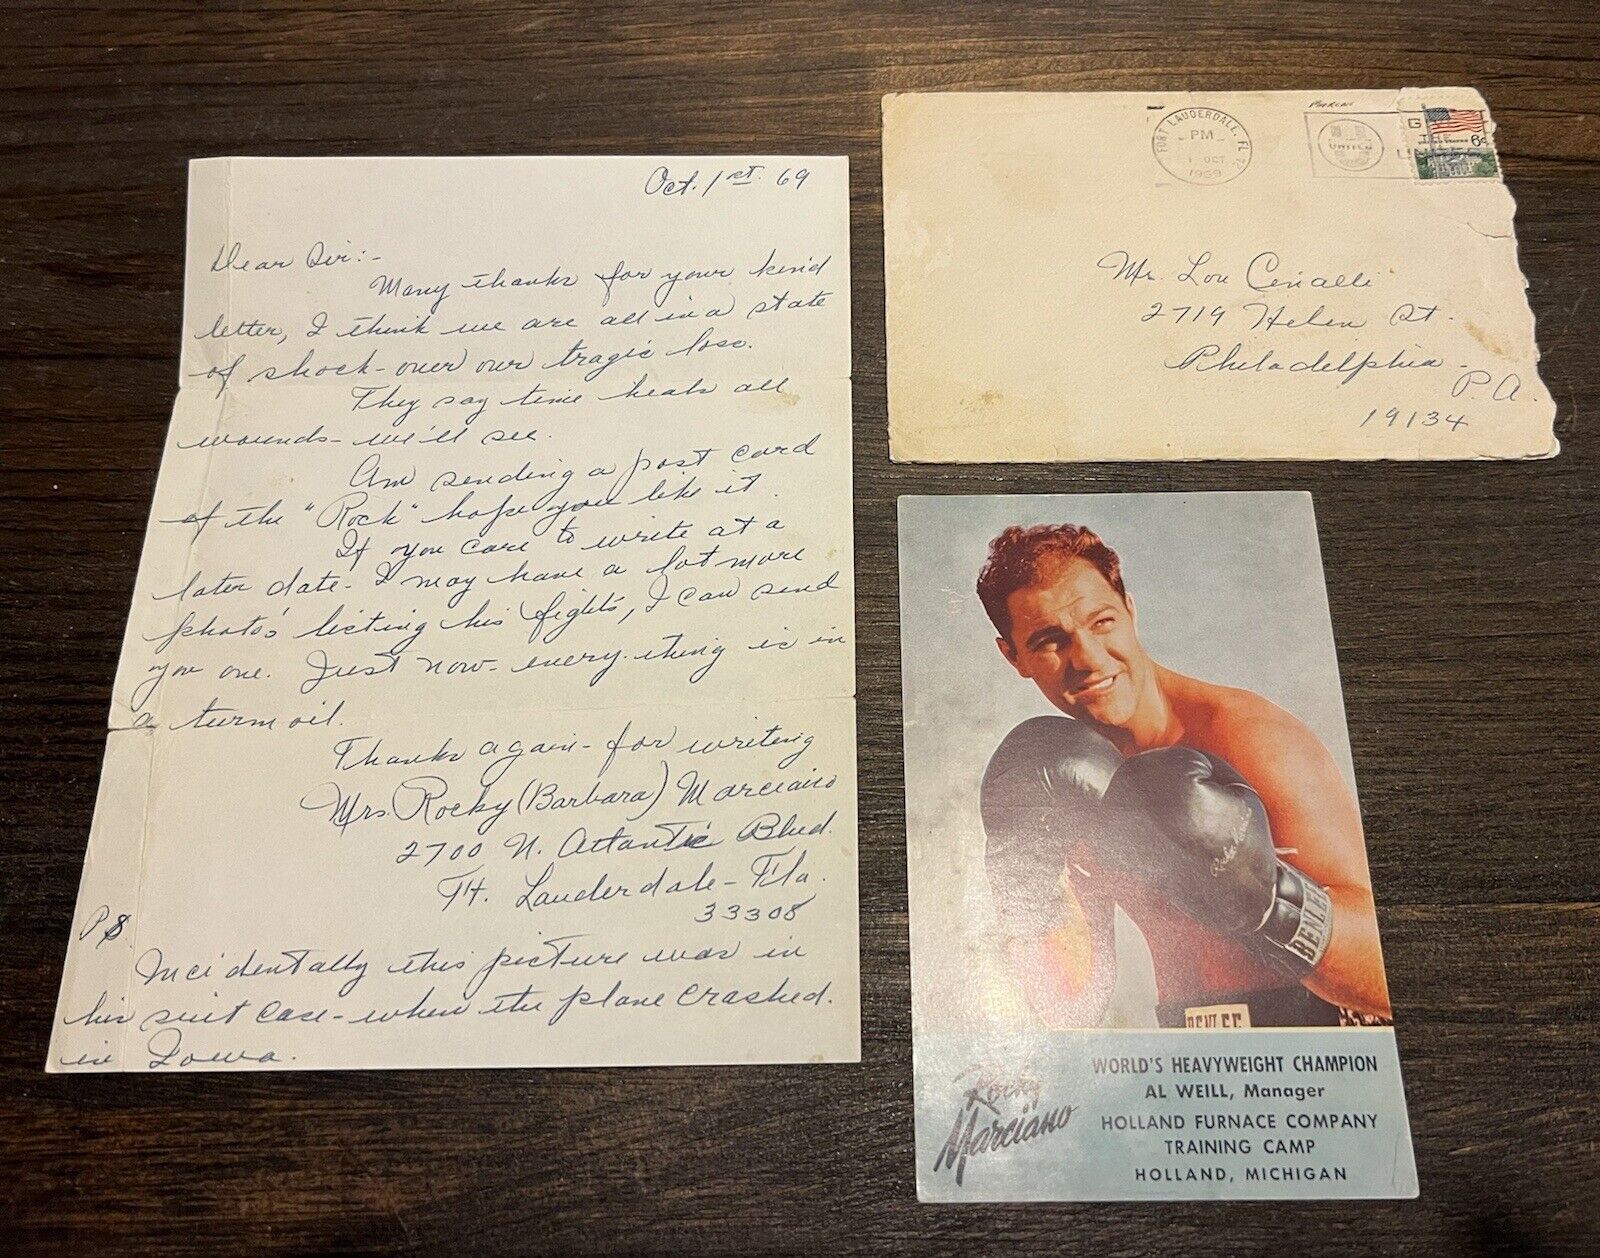 Oct. 1st. 69
Dear Sir:-
Many thanks for your kind
letter, I think we are all in a state
of shock - over our tragic loss.
They say time heals all
wounds - we'll see.
Am sending a post card
of the "Rock" hope you like it.
If you care to write at a
later date - I may have a lot more
photo's listing his fights, I can send
you one. Just now - every-thing is in
a turmoil.
Thanks again - for writing
Mrs. Rocky (Barbara) Marciano
2700 N. Atlantic Blvd.
Ft. Lauderdale - Fla.
33308
PS.
Incidentally this picture was in
his suit case - when the plane crashed.
in Iowa.
FORT LAUDERDALE, FL
PM
1 OCT
1969
UNITED
6¢
Mr. Lou Cinalli
2719 Helen St.
Philadelphia -
P.A.
19134
BENLEE
BENLEE
Rocky
Marciano
WORLD'S HEAVYWEIGHT CHAMPION
AL WEILL, Manager
HOLLAND FURNACE COMPANY
TRAINING CAMP
HOLLAND, MICHIGAN